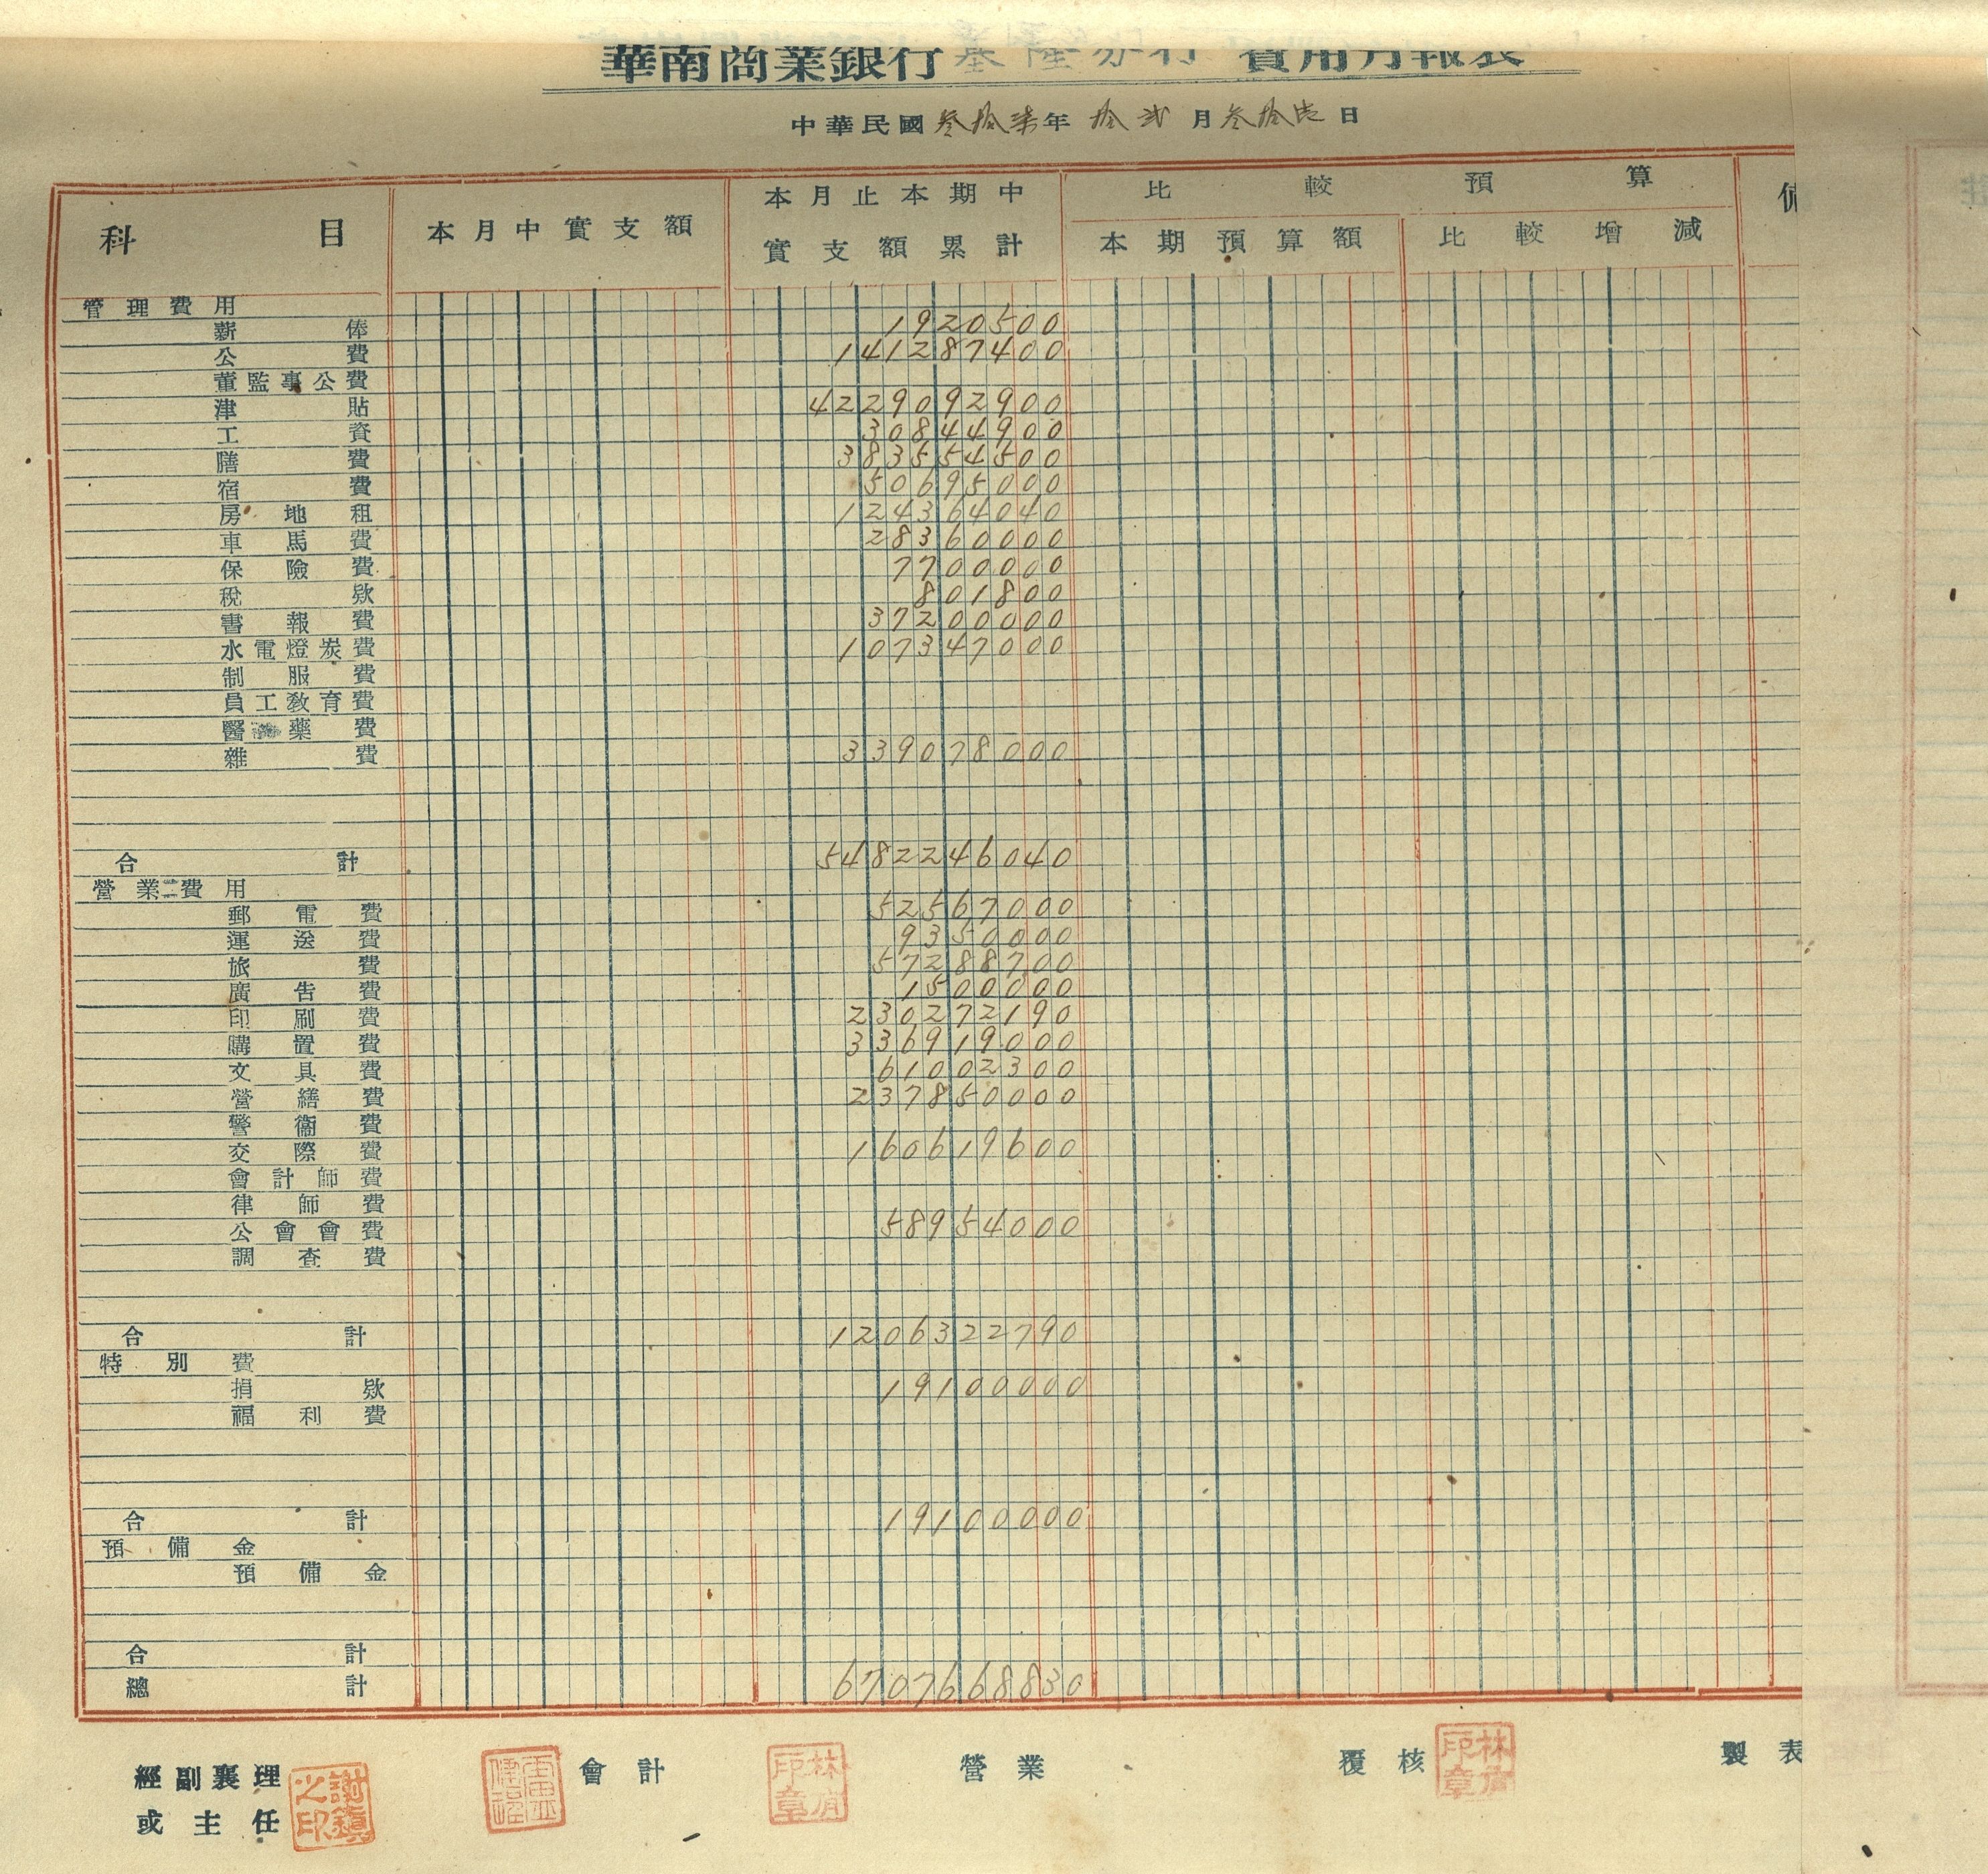 華南商業銀行 基隆分行 費用月報表
中華民國叁拾柒年拾弍月叁拾壱日
科目 本月中實支額 本月止本期中實支額累計 比較預算 本期預算額 比較增減 備
管理費用
薪俸 1920500
公費 141287400
董監事公費
津貼 4229092900
工資 30844900
膳費 383554500
宿費 50695000
房地租 124364040
車馬費 28360000
保險費 7700000
稅欵 801800
書報費 37200000
水電燈炭費 107347000
制服費
員工教育費
醫藥費
雜費 339078000
合計 5482246040
營業費用
郵電費 52567000
運送費 9350000
旅費 57288700
廣告費 1500000
印刷費 230272190
購置費 336919000
文具費 61002300
營繕費 237850000
警衞費
交際費 160619600
會計師費
律師費
公會會費 58954000
調查費
合計 1206322790
特別費
捐欵 19100000
福利費
合計 19100000
預備金
預備金
合計
總計 6707668830
經副襄理 會計 營業 覆核 製表
或主任
謝鎮之印
林㡯印章